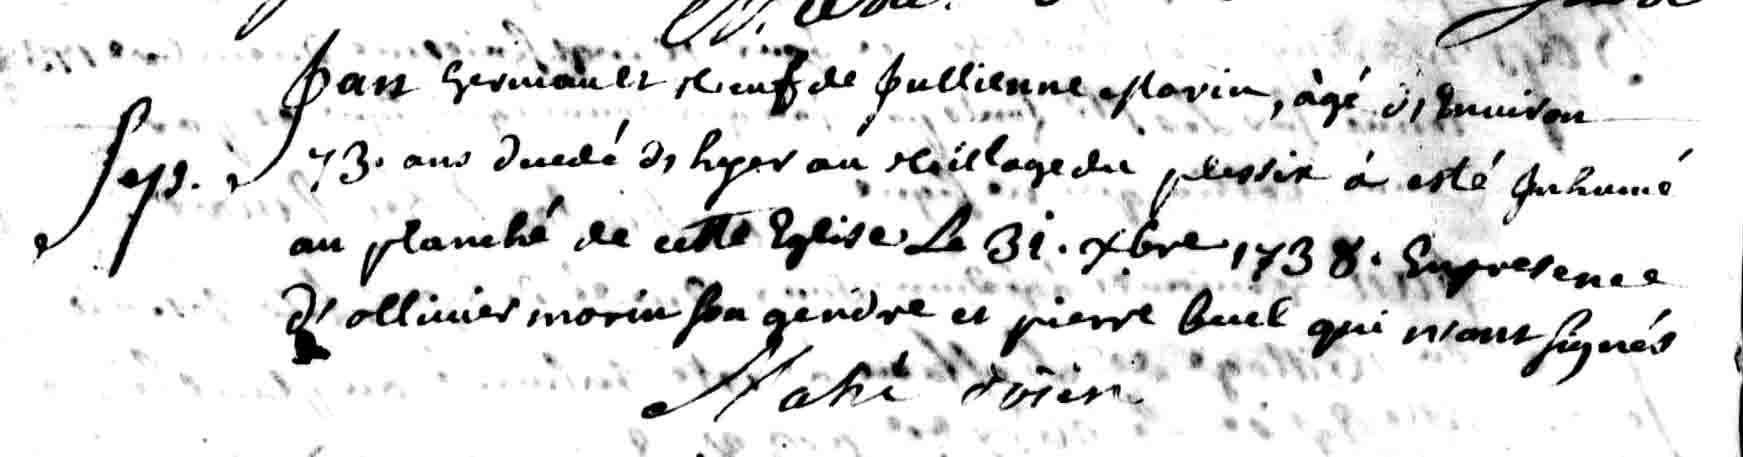 Jan Germault veuf de Jullienne Morin, àgé d'Environ
Sep. 73. ans decedé d'hyer au Village du plessix à esté Jnhumé
au planché de cette Eglise Le 31. xbre 1738. En presence
d'ollivier morin son gendre et pierre buel qui n'ont signés
Mahé